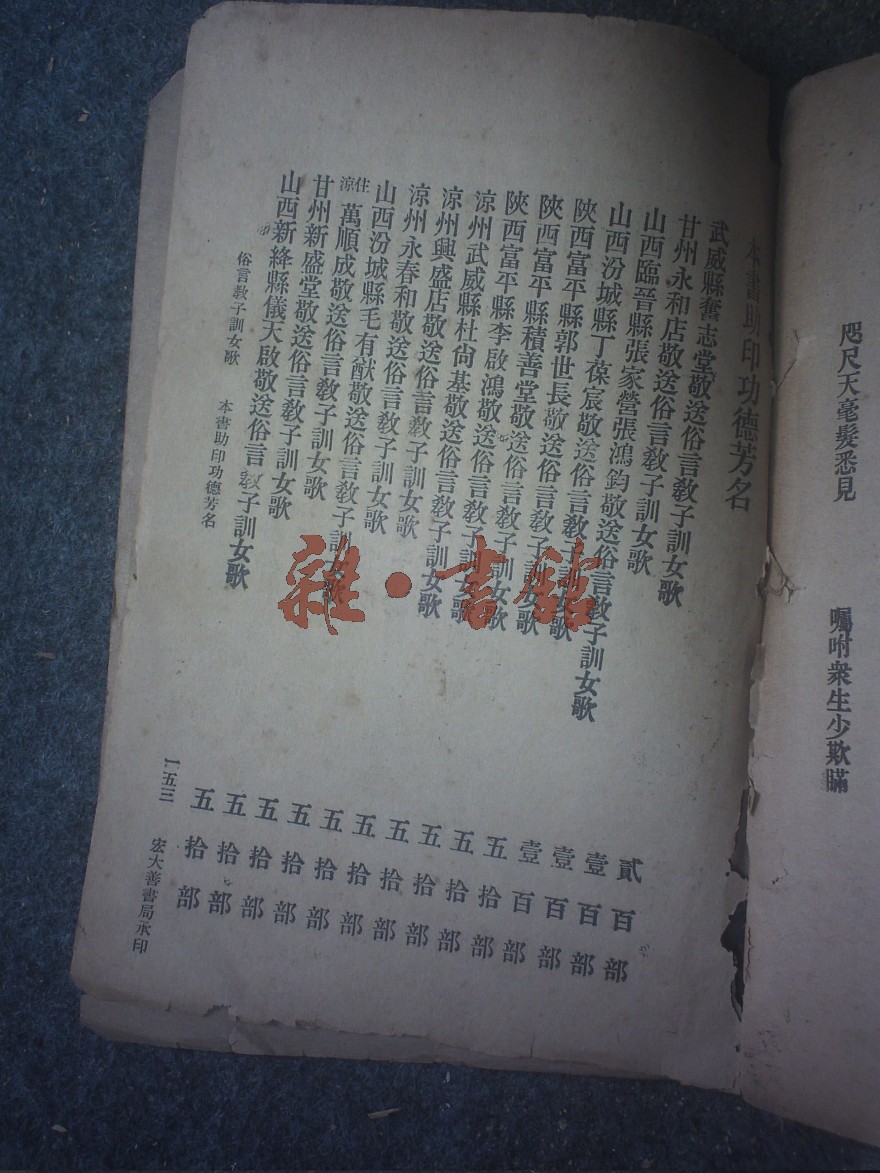 咫尺天毫髮悉見　囑咐衆生少欺瞞
本書助印功德芳名
武威縣奮志堂敬送俗言教子訓女歌　貳百部
甘州永和店敬送俗言教子訓女歌　壹百部
山西臨晉縣張家營張鴻鈞敬送俗言教子訓女歌　壹百部
山西汾城縣丁葆宸敬送俗言教子訓女歌　壹百部
陝西富平縣郭世長敬送俗言教子訓女歌　五拾部
陝西富平縣積善堂敬送俗言教子訓女歌　五拾部
陝西富平縣李啟鴻敬送俗言教子訓女歌　五拾部
涼州武威縣杜尙基敬送俗言教子訓女歌　五拾部
涼州興盛店敬送俗言教子訓女歌　五拾部
涼州永春和敬送俗言教子訓女歌　五拾部
山西汾城縣毛有猷敬送俗言教子訓女歌　五拾部
住涼萬順成敬送俗言教子訓女歌　五拾部
甘州新盛堂敬送俗言教子訓女歌　五拾部
山西新絳縣儀天啟敬送俗言教子訓女歌　五拾部
俗言教子訓女歌　本書助印功德芳名　一五三　宏大善書局承印
雜·書館